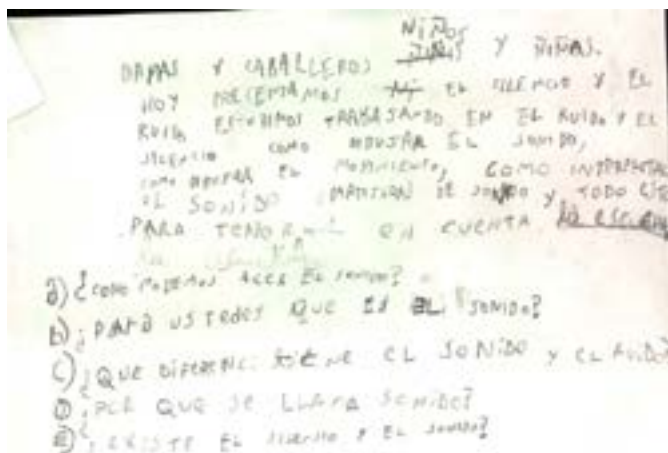 NIÑOS
DAMAS Y CABALLEROS Y NIÑAS.
HOY PRECENTAMOS EL SILENCIO Y EL
RUIDO ESTUBIMOS TRABAJANDO EN EL RUIDO Y EL
SILENCIO COMO DIBUJAR EL SONIDO,
COMO DIBUJAR EL MOVIMIENTO, COMO INTERPRETAR
EL SONIDO DE SONIDO Y TODO
PARA TENER EN CUENTA
a) ¿COMO PODEMOS ACER EL SONIDO?
b) ¿PARA USTEDES QUE ES EL SONIDO?
C) ¿QUE DIFERENCI TIENE EL SONIDO Y EL RUIDO?
D) ¿POR QUE SE LLAMA SONIDO?
E) ¿EXISTE EL SILENCIO Y EL SONIDO?